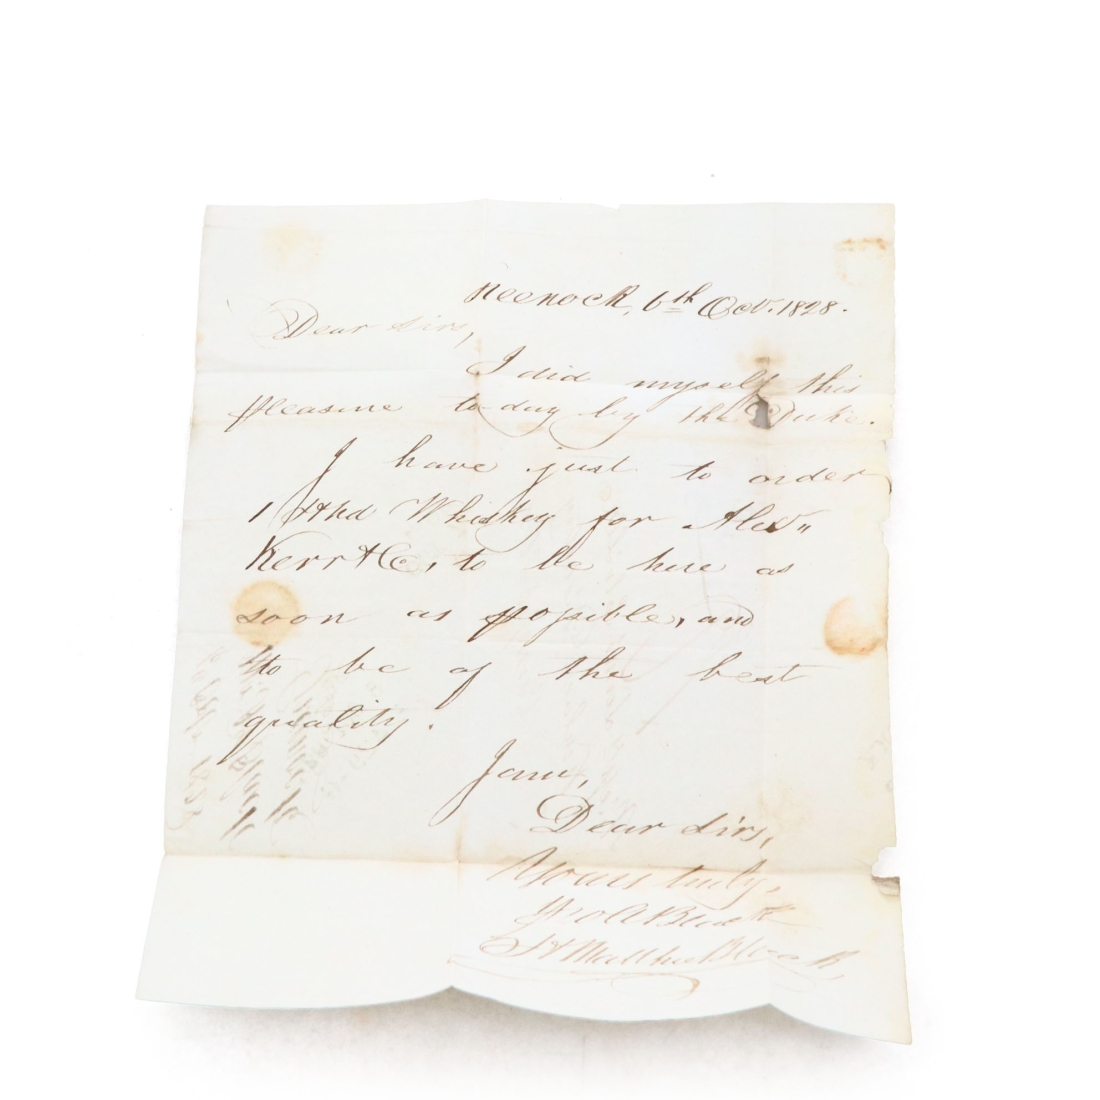 Greenock, 6th Oct. 1828.
Dear Sirs,
I did myself this
pleasure to-day by the Duke.
I have just to order
1 Hhd Whiskey for Alexr
Kerr & Co, to be here as
soon as possible, and
to be of the best
quality.
I am,
Dear Sirs,
Yours truly,
Black
Matthew Black,